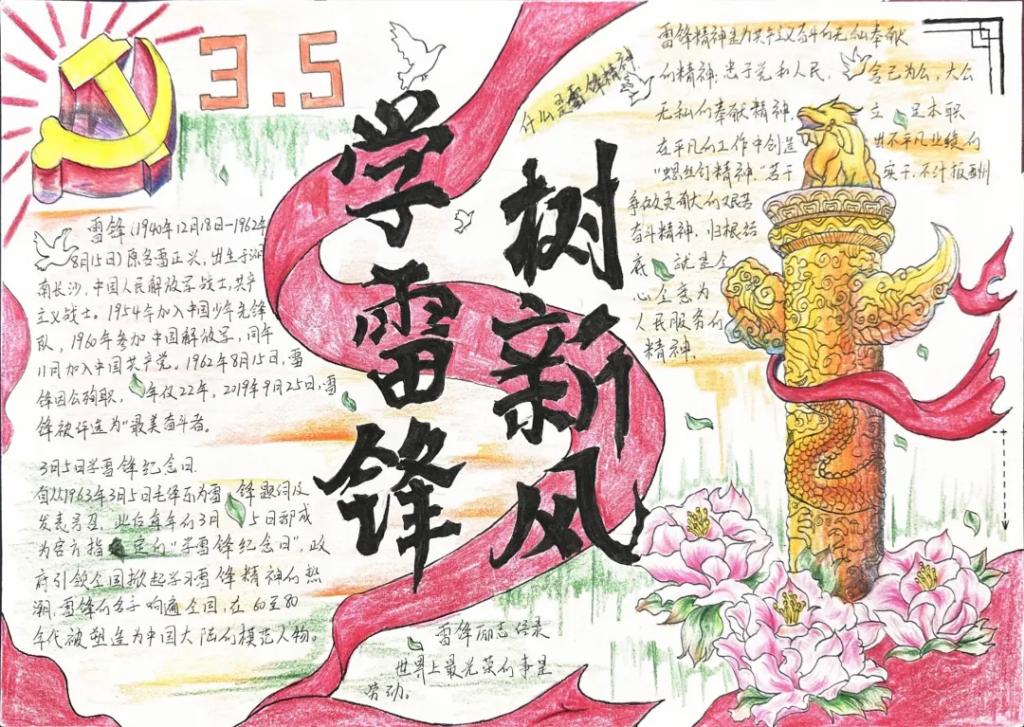 3.5
学雷锋
树新风
什么是雷锋精神
雷锋精神是为共产主义奋斗的无私奉献
的精神;忠于党和人民,舍己为公,大公
无私的奉献精神,立足本职
在平凡的工作中创造出不平凡业绩的
"螺丝钉精神,"苦干实干,不计报酬
争做贡献的艰苦
奋斗精神,归根结
底,就是全
心全意为
人民服务的
精神.
雷锋(1940年12月18日-1962年
8月15日)原名雷正兴,出生于湖
南长沙,中国人民解放军战士,共产
主义战士。1954年加入中国少年先锋
队,1960年参加中国解放军,同年
11月加入中国共产党。1962年8月15日,雷
锋因公殉职,年仅22年,2019年9月25日,雷
锋被评选为"最美奋斗者。
3月5日学雷锋纪念日
自从1963年3月5日毛泽东为雷锋题词及
发表号召,此后每年的3月5日都成
为官方指定的"学雷锋纪念日",政
府引领全国掀起学习雷锋精神的热
潮,雷锋的名字响遍全国,在60至80
年代被塑造为中国大陆的模范人物。
雷锋励志语录
世界上最光荣的事是
劳动。